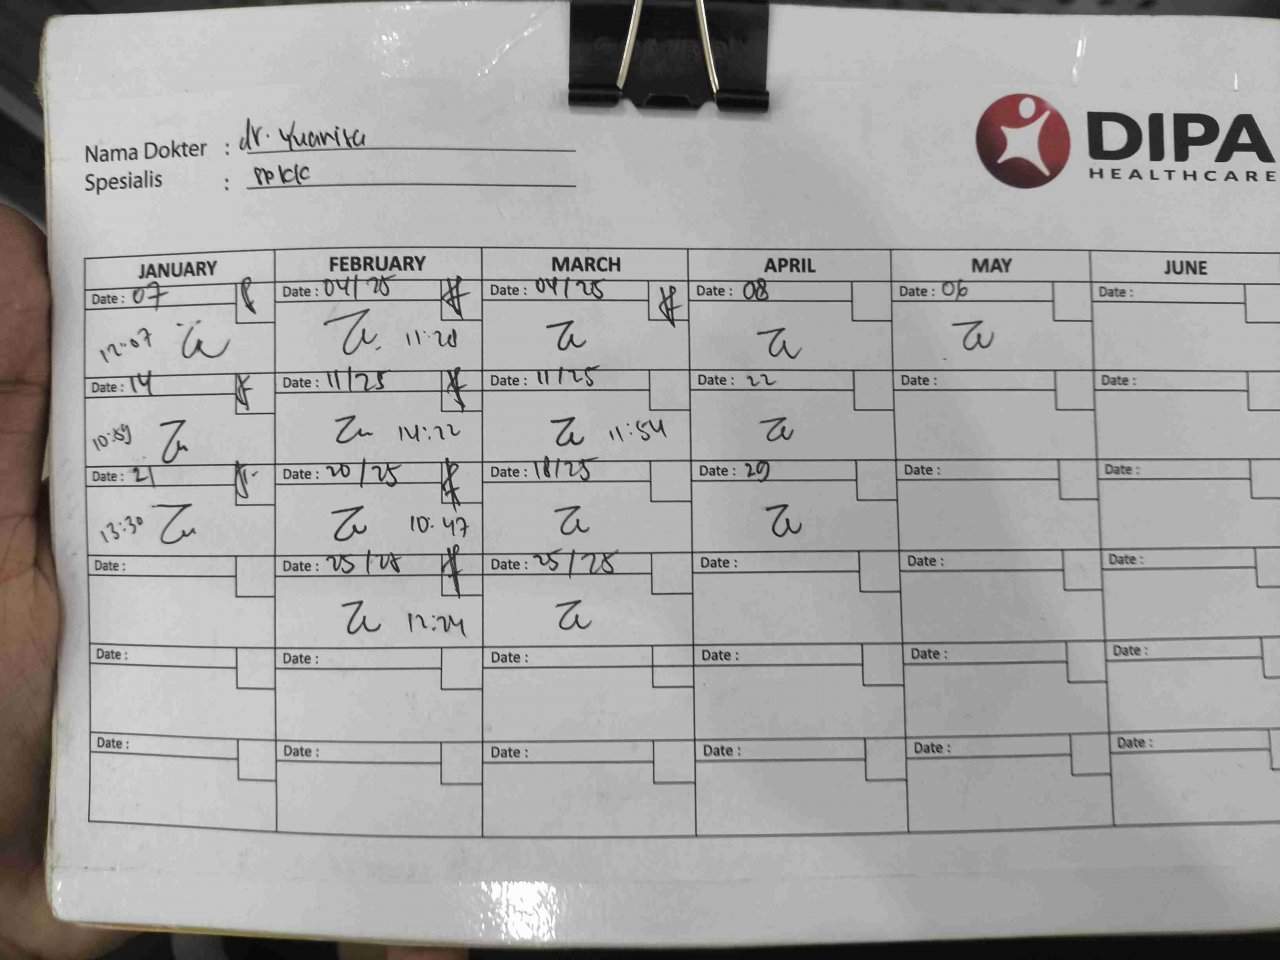 DIPA
HEALTHCARE
Nama Dokter : dr. Yuanita
Spesialis :
JANUARY FEBRUARY MARCH APRIL MAY JUNE
Date : 07 Date : 04/25 Date : 04/25 Date : 08 Date : 06 Date :
12:07 11:28
Date : 14 Date : 11/25 Date : 11/25 Date : 22 Date : Date :
10:59 14:22 11:54
Date : 21 Date : 20/25 Date : 18/25 Date : 29 Date : Date :
13:30 10:47
Date : Date : 25/25 Date : 25/25 Date : Date : Date :
12:24
Date : Date : Date : Date : Date : Date :
Date : Date : Date : Date : Date : Date :